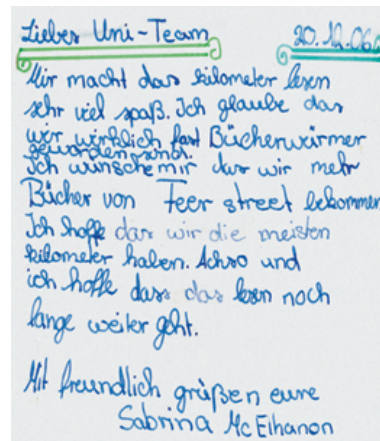 Liebes Uni-Team 20.12.06
Mir macht das kilometer lesen
sehr viel spaß. Ich glaube das
wir wirklich fast Bücherwürmer
geworden sind.
Ich wünsche mir das wir mehr
Bücher von Feer street bekommen
Ich hoffe das wir die meisten
kilometer haben. Achso und
ich hoffe dass das lesen noch
lange weiter geht.
Mit freundlich grüßen eure
Sabrina Mc Elhanon